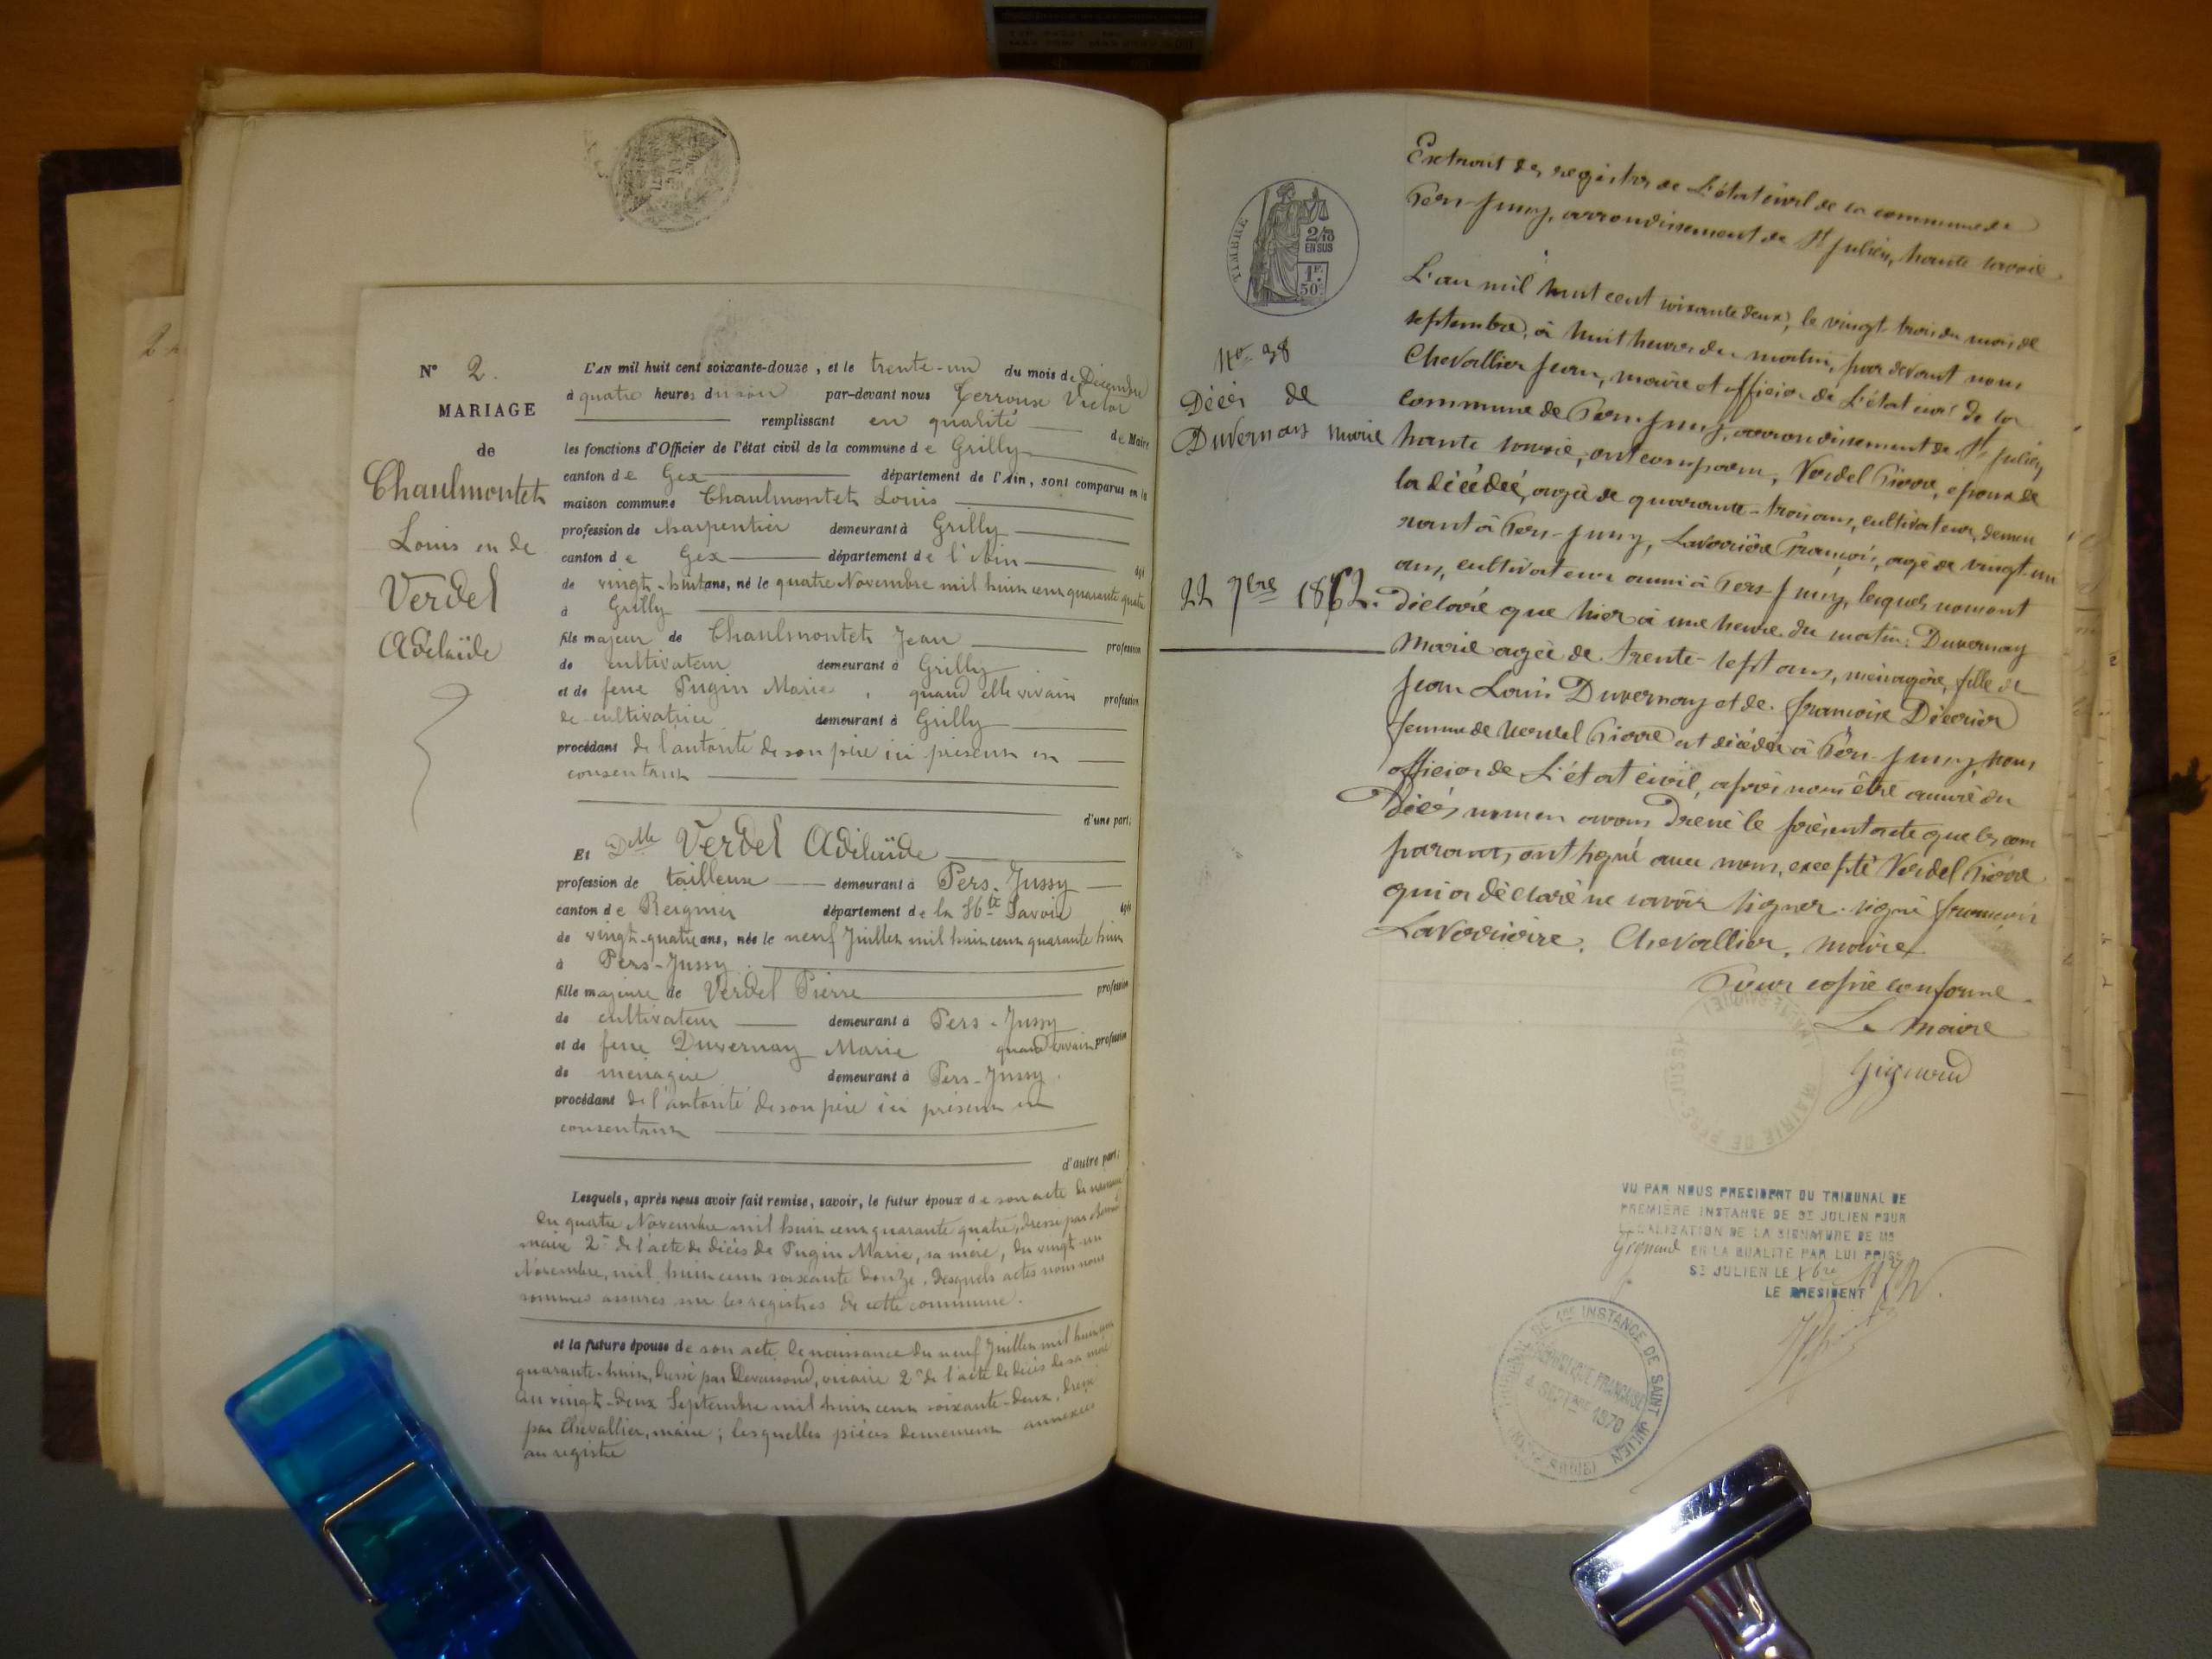 N° 2.
MARIAGE
de
Chaulmontet
Louis et de
Verdel
Adélaïde
L'AN mil huit cent soixante-douze, et le trente-un du mois de Décembre
à quatre heures du soir par-devant nous Terroux Victor
remplissant en qualité de Maire
les fonctions d'Officier de l'état civil de la commune de Grilly
canton de Gex département de l'Ain, sont comparus en la
maison commune Chaulmontet Louis
profession de charpentier demeurant à Grilly
canton de Gex département de l'Ain âgé
de vingt-huit ans, né le quatre Novembre mil huit cent quarante quatre
à Grilly
fils majeur de Chaulmontet Jean profession
de cultivateur demeurant à Grilly
et de feue Pugin Marie, quand elle vivait profession
de cultivatrice demeurant à Grilly
procédant de l'autorité de son père ici présent et
consentant
d'une part;
Et Delle Verdel Adélaïde
profession de tailleuse demeurant à Pers-Jussy
canton de Reignier département de la Hte Savoie âgée
de vingt-quatre ans, née le neuf Juillet mil huit cent quarante huit
à Pers-Jussy
fille majeure de Verdel Pierre profession
de cultivateur demeurant à Pers-Jussy
et de feue Duvernay Marie quand vivait profession
de ménagère demeurant à Pers-Jussy
procédant de l'autorité de son père ici présent et
consentant
d'autre part;
Lesquels, après nous avoir fait remise, savoir, le futur époux de son acte de naissance
du quatre Novembre mil huit cent quarante quatre, dressé par
maire 2° de l'acte de décès de Pugin Marie, sa mère, du vingt-un
Novembre, mil huit cent soixante douze, desquels actes nous nous
sommes assurés sur les registres de cette commune.
et la future épouse de son acte de naissance du neuf Juillet mil huit cent
quarante-huit, dressé par Devassond, vicaire 2° de l'acte de décès de sa mère
du vingt-deux Septembre mil huit cent soixante-deux, dressé
par Chevallier, maire; lesquelles pièces demeurent annexées
au registre
TIMBRE
2/10
EN SUS
1F.
50c
No 38
Décès de
Duvernay Marie
22 7bre 1862.
Extrait des registres de L'état civil de la commune de
Pers-Jussy, arrondissement de St Julien, haute savoie.
L'an mil huit cent soixante deux, le vingt trois du mois de
septembre, à huit heures du matin, par devant nous
Chevallier Jean, maire et officier de L'état civil de la
commune de Pers-Jussy, arrondissement de St Julien,
haute savoie, ont comparu, Verdel Pierre, époux de
la décédée, agé de quarante-trois ans, cultivateur, demeu
rant à Pers-Jussy, Laverrière François, agé de vingt-un
ans, cultivateur aussi à Pers-Jussy, lesquels nous ont
déclaré que hier à une heure du matin: Duvernay
Marie agée de trente-sept ans, ménagère, fille de
Jean Louis Duvernay et de françoise Décorier
femme de Verdel Pierre est décédée à Pers-Jussy, nous
officier de L'état civil, après nous être assuré du
Décès nous en avons Dressé le présent acte que les com
parants, ont signé avec nous, excepté Verdel Pierre
qui a déclaré ne savoir signer. signé françois
Laverrière, Chevallier, maire
Pour copie conforme.
Le maire
Gignoud
MAIRIE DE PERS-JUSSY
VU PAR NOUS PRESIDENT DU TRIBUNAL DE
PREMIERE INSTANCE DE ST JULIEN POUR
LEGALISATION DE LA SIGNATURE DE MR
Gignoud EN LA QUALITE PAR LUI PRISE
ST JULIEN LE Xbre 1872.
LE PRESIDENT
TRIBUNAL DE 1RE INSTANCE DE SAINT JULIEN
REPUBLIQUE FRANÇAISE
4 SEPTBRE 1870